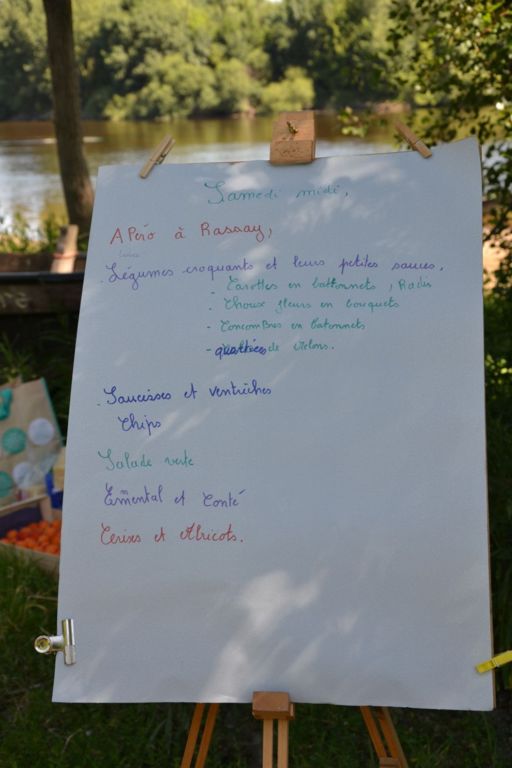 Samedi midi,
APéro à Rassay,
. Légumes croquants et leurs petites sauces.
- Carottes en battonnets, Radis
- Choux fleurs en bouquets
- Concombres en batonnets
- quartiers de Melons.
. Saucisses et ventrèches
Chips
Salade verte
Emmental et Conté
Cerises et Abricots.